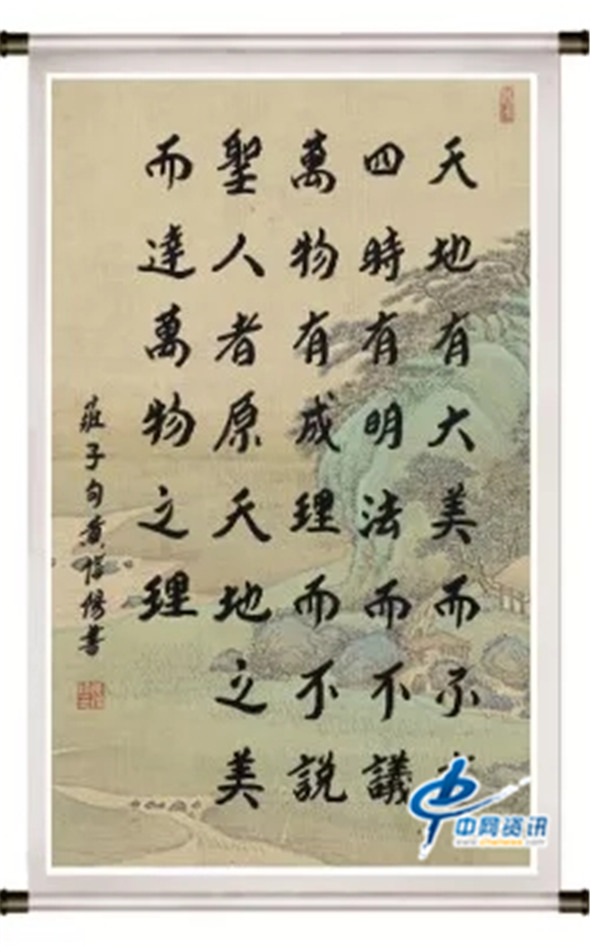 天地有大美而不
四時有明法而不議
萬物有成理而不説
聖人者原天地之美
而達萬物之理
莊子句黄書
中网资讯